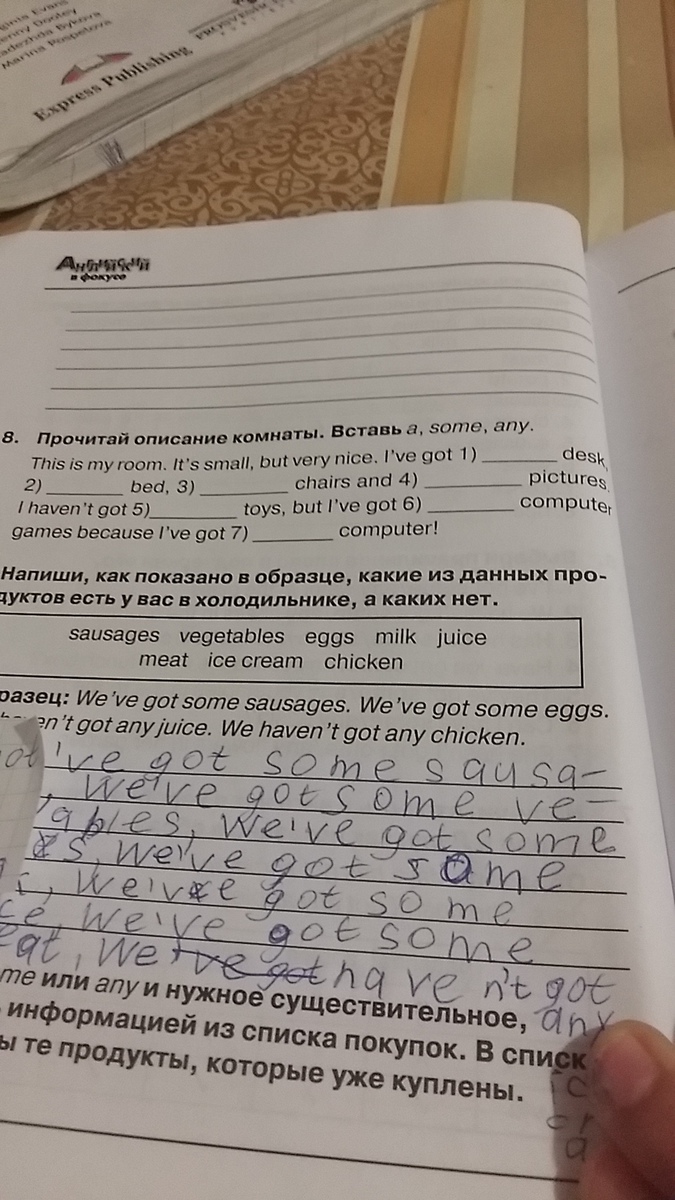 Evans
enny Dooley
adezhda Bykova
Marina Pospelova
Express Publishing
Английский
в фокусе
8. Прочитай описание комнаты. Вставь a, some, any.
This is my room. It's small, but very nice. I've got 1) ________ desk,
2) ________ bed, 3) ________ chairs and 4) ________ pictures.
I haven't got 5) ________ toys, but I've got 6) ________ computer
games because I've got 7) ________ computer!
Напиши, как показано в образце, какие из данных про-
дуктов есть у вас в холодильнике, а каких нет.
sausages vegetables eggs milk juice
meat ice cream chicken
разец: We've got some sausages. We've got some eggs.
en't got any juice. We haven't got any chicken.
've got some sausa-
, We've got some ve-
ables, We've got some
s, We've got some
, We've got some
ce, We've got some
eat, We've got haven't got
me или any и нужное существительное, any
информацией из списка покупок. В списк
ы те продукты, которые уже куплены.
ic
cr
a